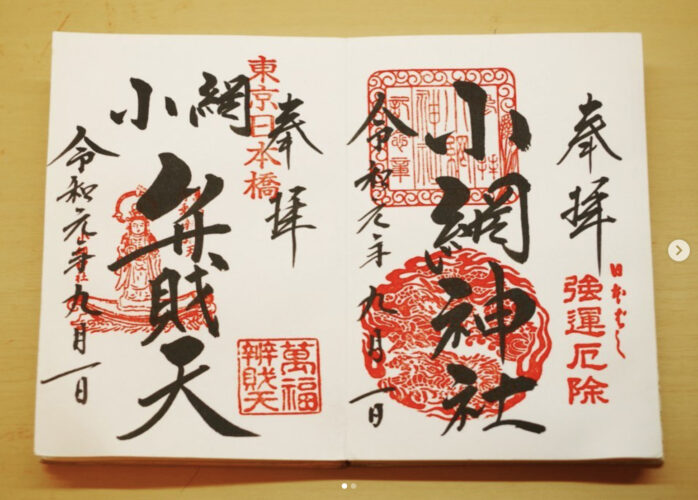 奉拝
日本ばし
強運厄除
小網神社
令和元年九月一日
奉拝
東京日本橋
小網
弁財天
萬福
辨財天
令和元年九月一日